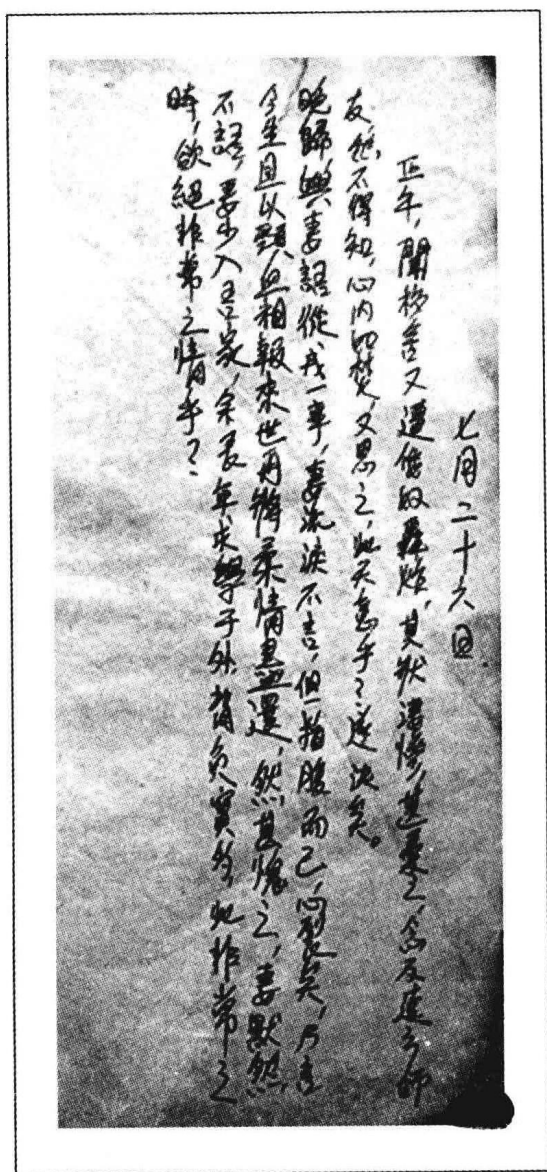 七月二十六日
正午，聞校舍又遭倭奴轟炸，其狀悽慘，甚憂之，念及連云師
友，然不得知，心内如焚，又思之，此天意乎？遂決矣。
晚歸與妻語從戎一事，妻流淚不言，但指腹而已，心裂矣，乃言
今生且以頸血相報來世再將柔情里還，然甚愧之，妻默然
不語，妻少入吾家，余長年求學于外，皆負實多，此非常之
時，欲絕非常之情乎？